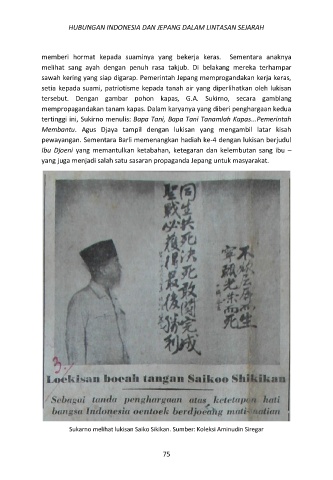 HUBUNGAN INDONESIA DAN JEPANG DALAM LINTASAN SEJARAH
memberi hormat kepada suaminya yang bekerja keras. Sementara anaknya
melihat sang ayah dengan penuh rasa takjub. Di belakang mereka terhampar
sawah kering yang siap digarap. Pemerintah Jepang mempropagandakan kerja keras,
setia kepada suami, patriotisme kepada tanah air yang diperlihatkan oleh lukisan
tersebut. Dengan gambar pohon kapas, G.A. Sukirno, secara gamblang
mempropagandakan tanam kapas. Dalam karyanya yang diberi penghargaan kedua
tertinggi ini, Sukirno menulis: Bapa Tani, Bapa Tani Tanamlah Kapas...Pemerintah
Membantu. Agus Djaya tampil dengan lukisan yang mengambil latar kisah
pewayangan. Sementara Barli memenangkan hadiah ke-4 dengan lukisan berjudul
Ibu Djoeni yang memantulkan ketabahan, ketegaran dan kelembutan sang ibu –
yang juga menjadi salah satu sasaran propaganda Jepang untuk masyarakat.
同生共死決死敢闘完成
聖戦必獲得最後勝利
3.
Loekisan boeah tangan Saikoo Shikikan
Sebagai tanda penghargaan atas ketetapan hati
bangsa Indonesia oentoek berdjoeang mati-matian
Sukarno melihat lukisan Saiko Sikikan. Sumber: Koleksi Aminudin Siregar
75